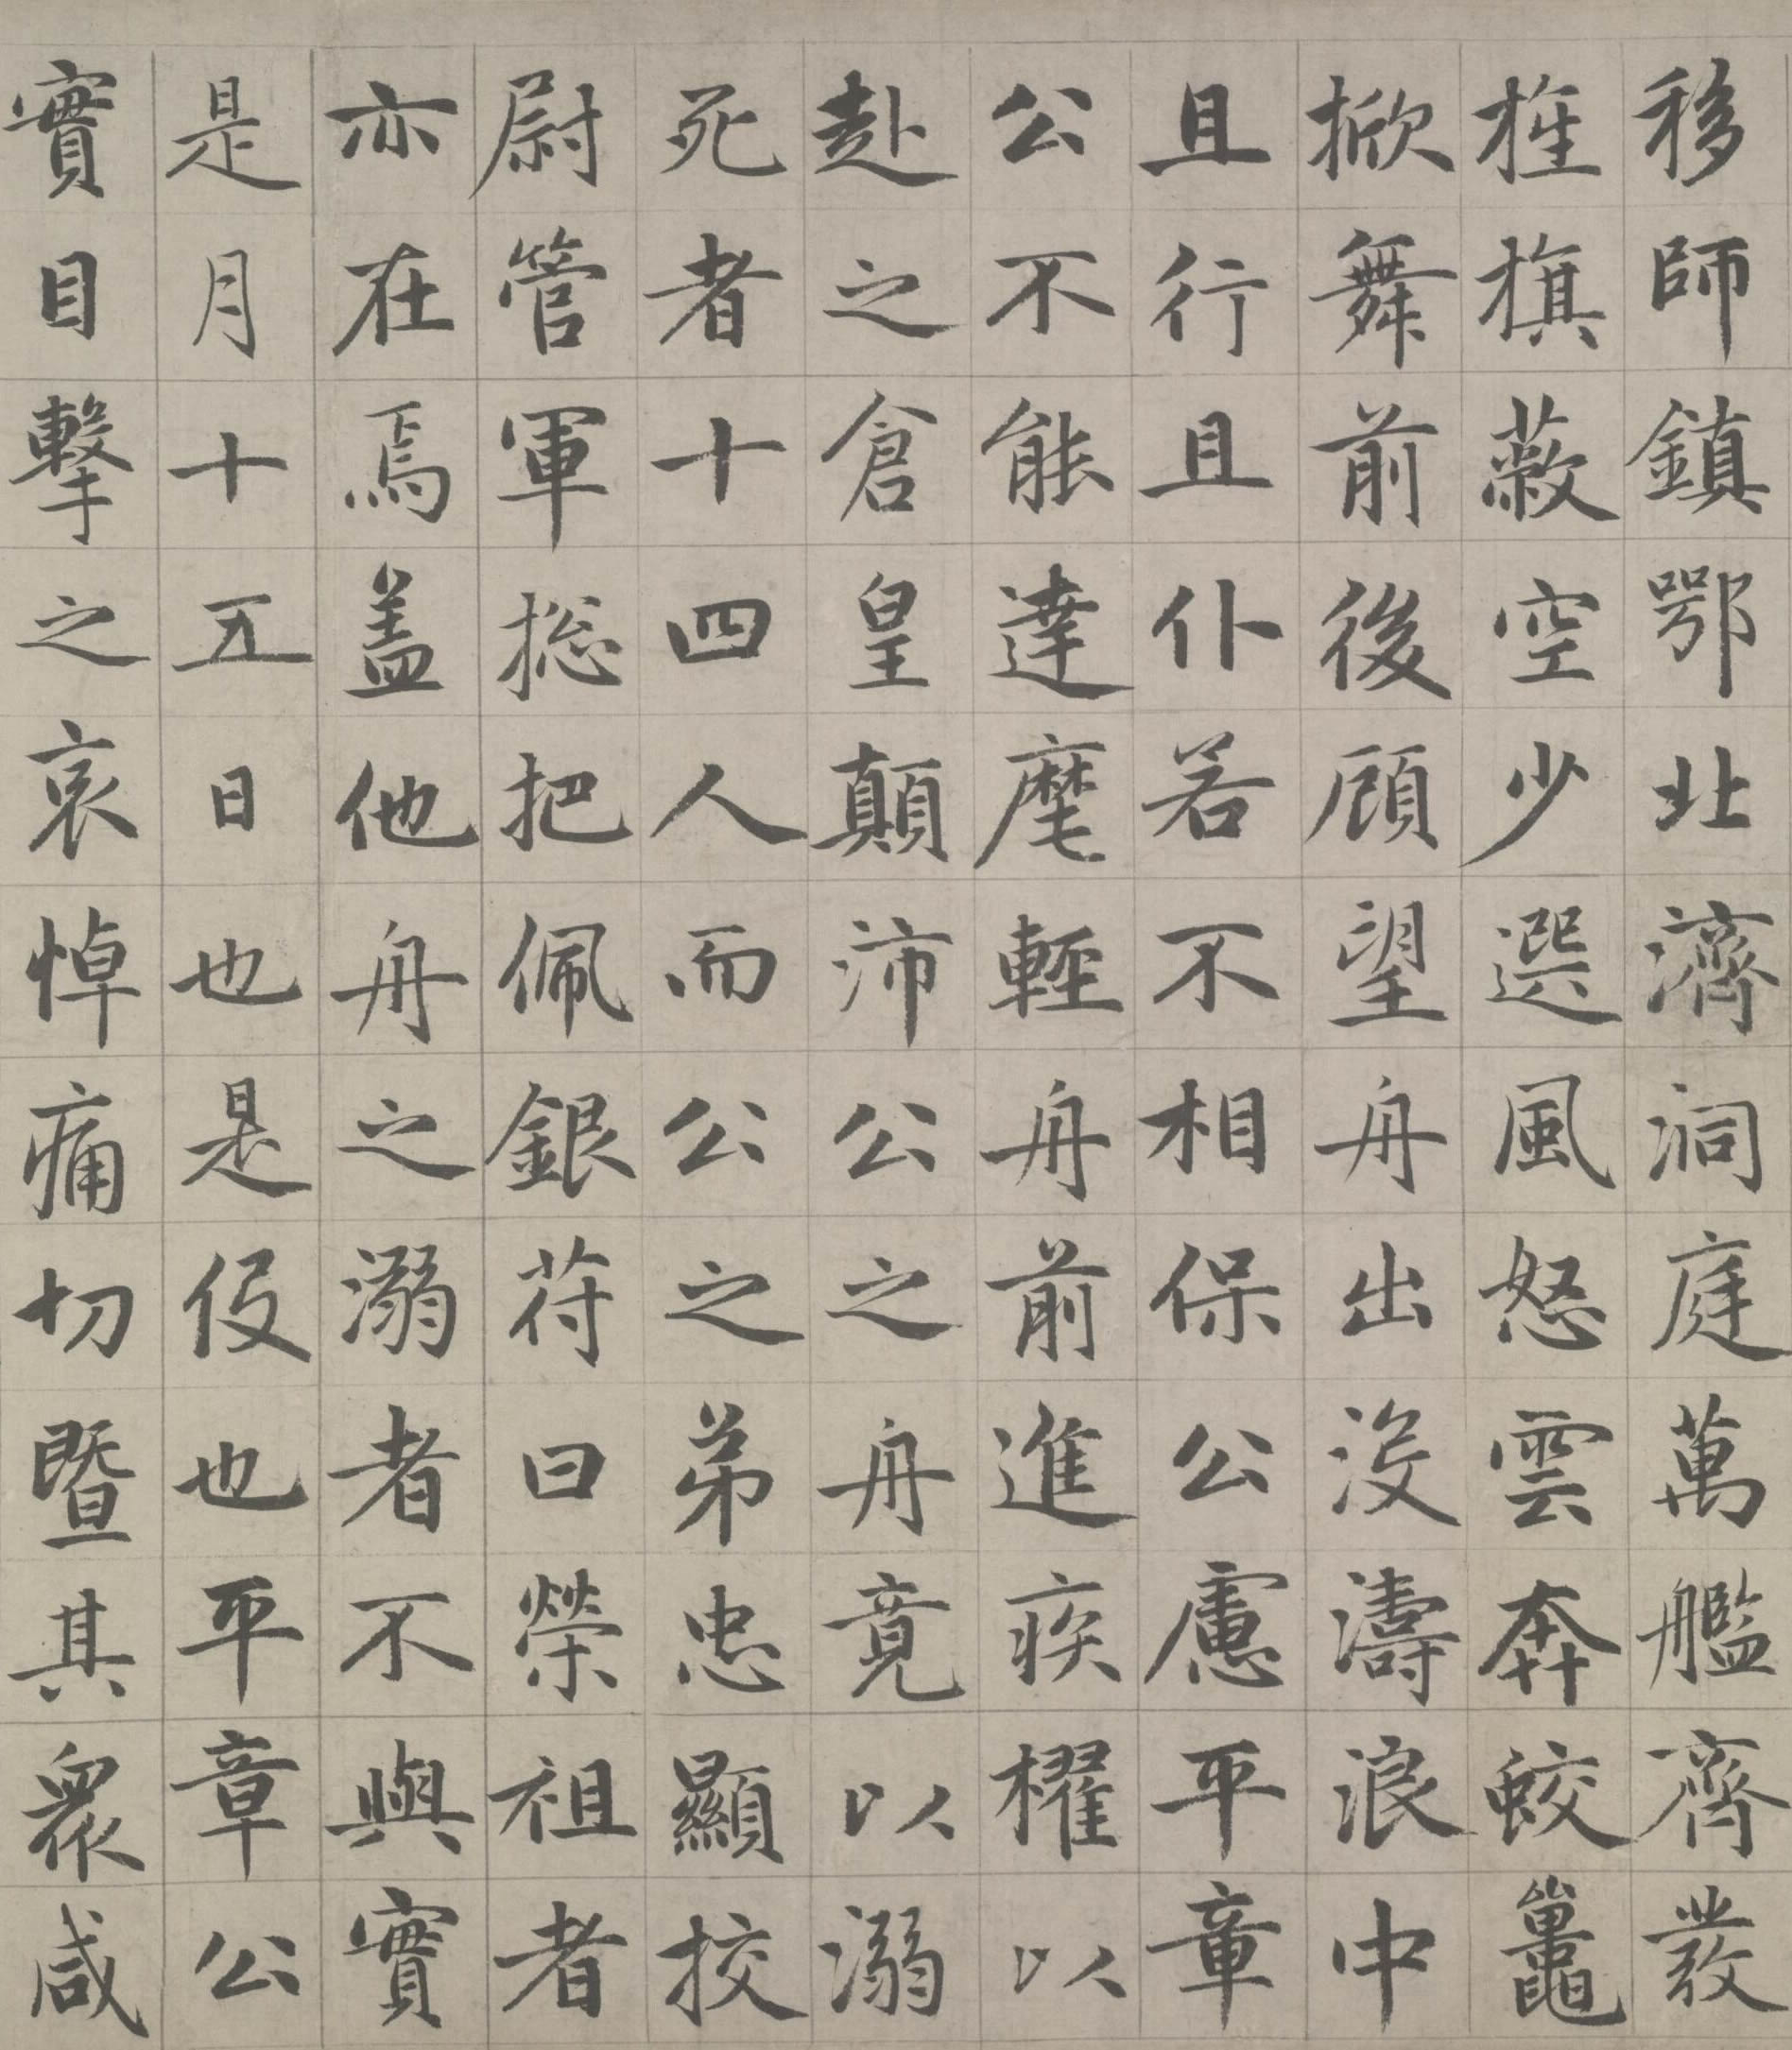 移師鎮鄂北濟洞庭萬艦齊發
旌旗蔽空少選風怒雲奔蛟鼉
掀舞前後顧望舟出沒濤浪中
且行且仆若不相保公慮平章
公不能達麾輕舟前進疾櫂以
赴之倉皇顛沛公之舟竟以溺
死者十四人而公之弟忠顯挍
尉管軍揔把佩銀符曰榮祖者
亦在焉盖他舟之溺者不與實
是月十五日也是役也平章公
實目擊之哀悼痛切暨其衆咸